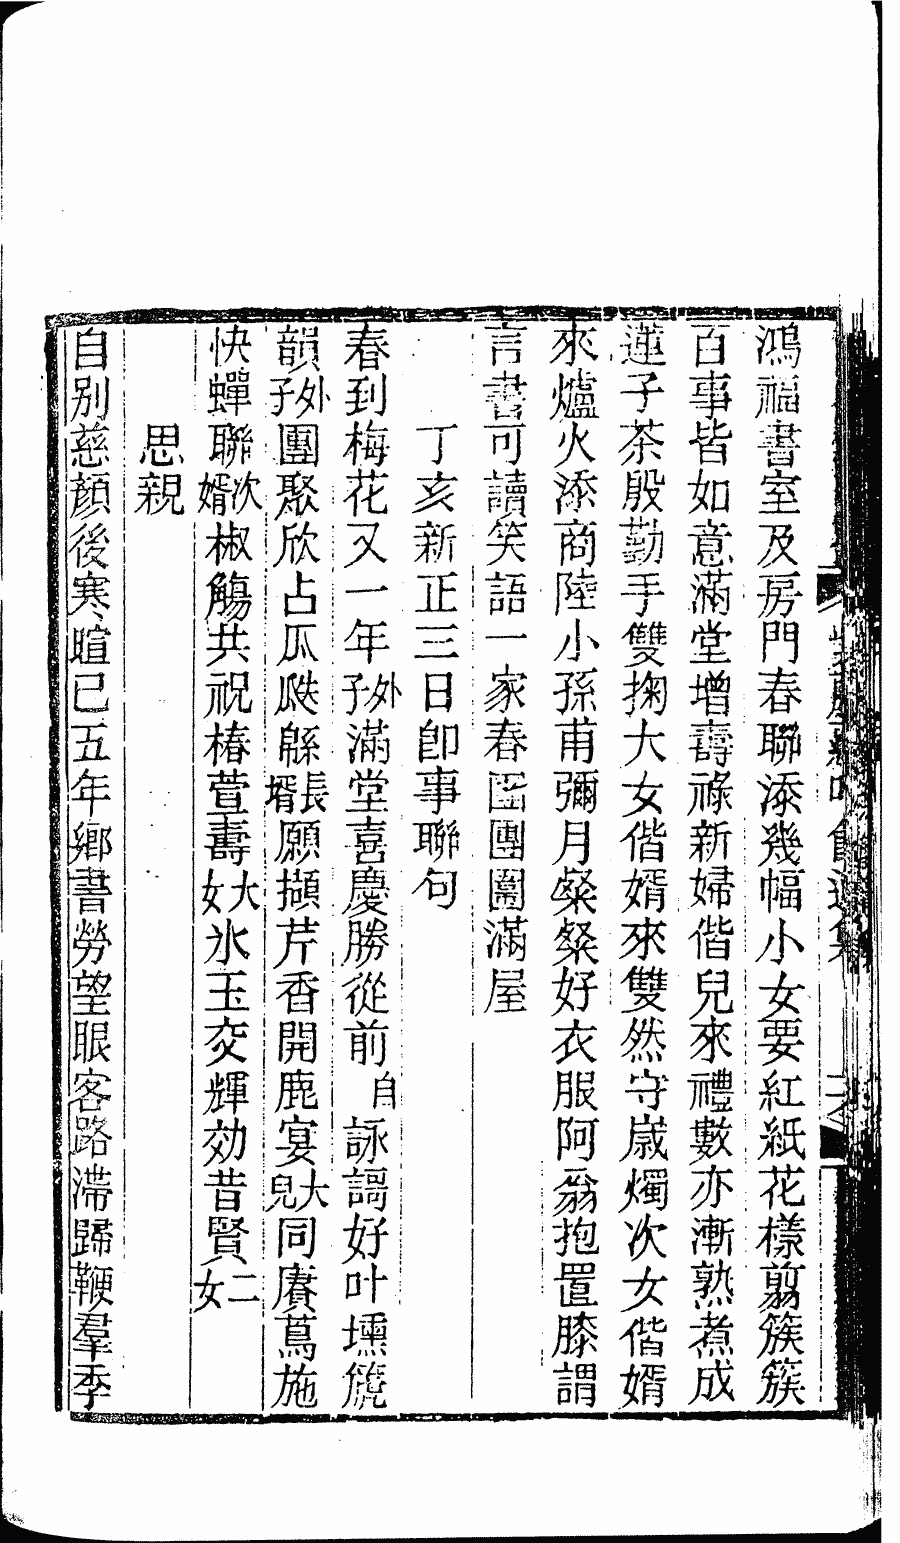 鴻福書室及房門春聯添幾幅小女要紅紙花樣翦簇簇
百事皆如意滿堂增壽祿新婦偕兒來禮數亦漸熟煮成
蓮子茶殷勤手雙掬大女偕婿來雙然守嵗燭次女偕婿
來爐火添商陸小孫甫彌月粲粲好衣服阿翁抱置膝謂
言書可讀笑語一家春團團圞滿屋
丁亥新正三日卽事聯句
春到梅花又一年外子滿堂喜慶勝從前自詠謌好叶壎篪
韻外子團聚欣占瓜瓞緜長婿願擷芹香開鹿宴大兒同賡蔦施
快蟬聯次婿椒觴共祝椿萱壽大女氷玉交輝効昔賢二女
思親
自別慈顏後寒暄已五年鄉書勞望眼客路滯歸鞭羣季